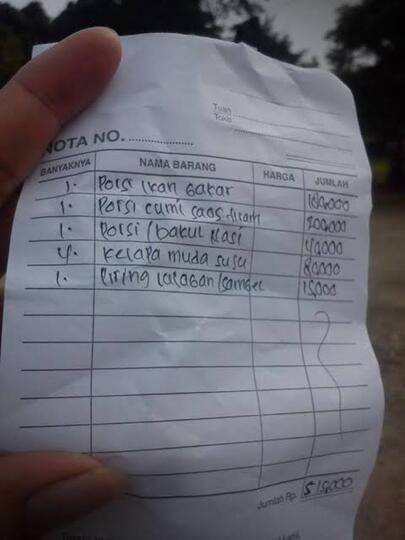 Tuan
Toko
NOTA NO.
BANYAKNYA NAMA BARANG HARGA JUMLAH
1. Porsi Ikan Bakar 180.000
1. Porsi cumi saos tiram 200.000
1. Porsi / bakul Nasi 40.000
4. Kelapa muda susu 80.000
1. Piring lalaban / sambel 15.000
Jumlah Rp. 515.000